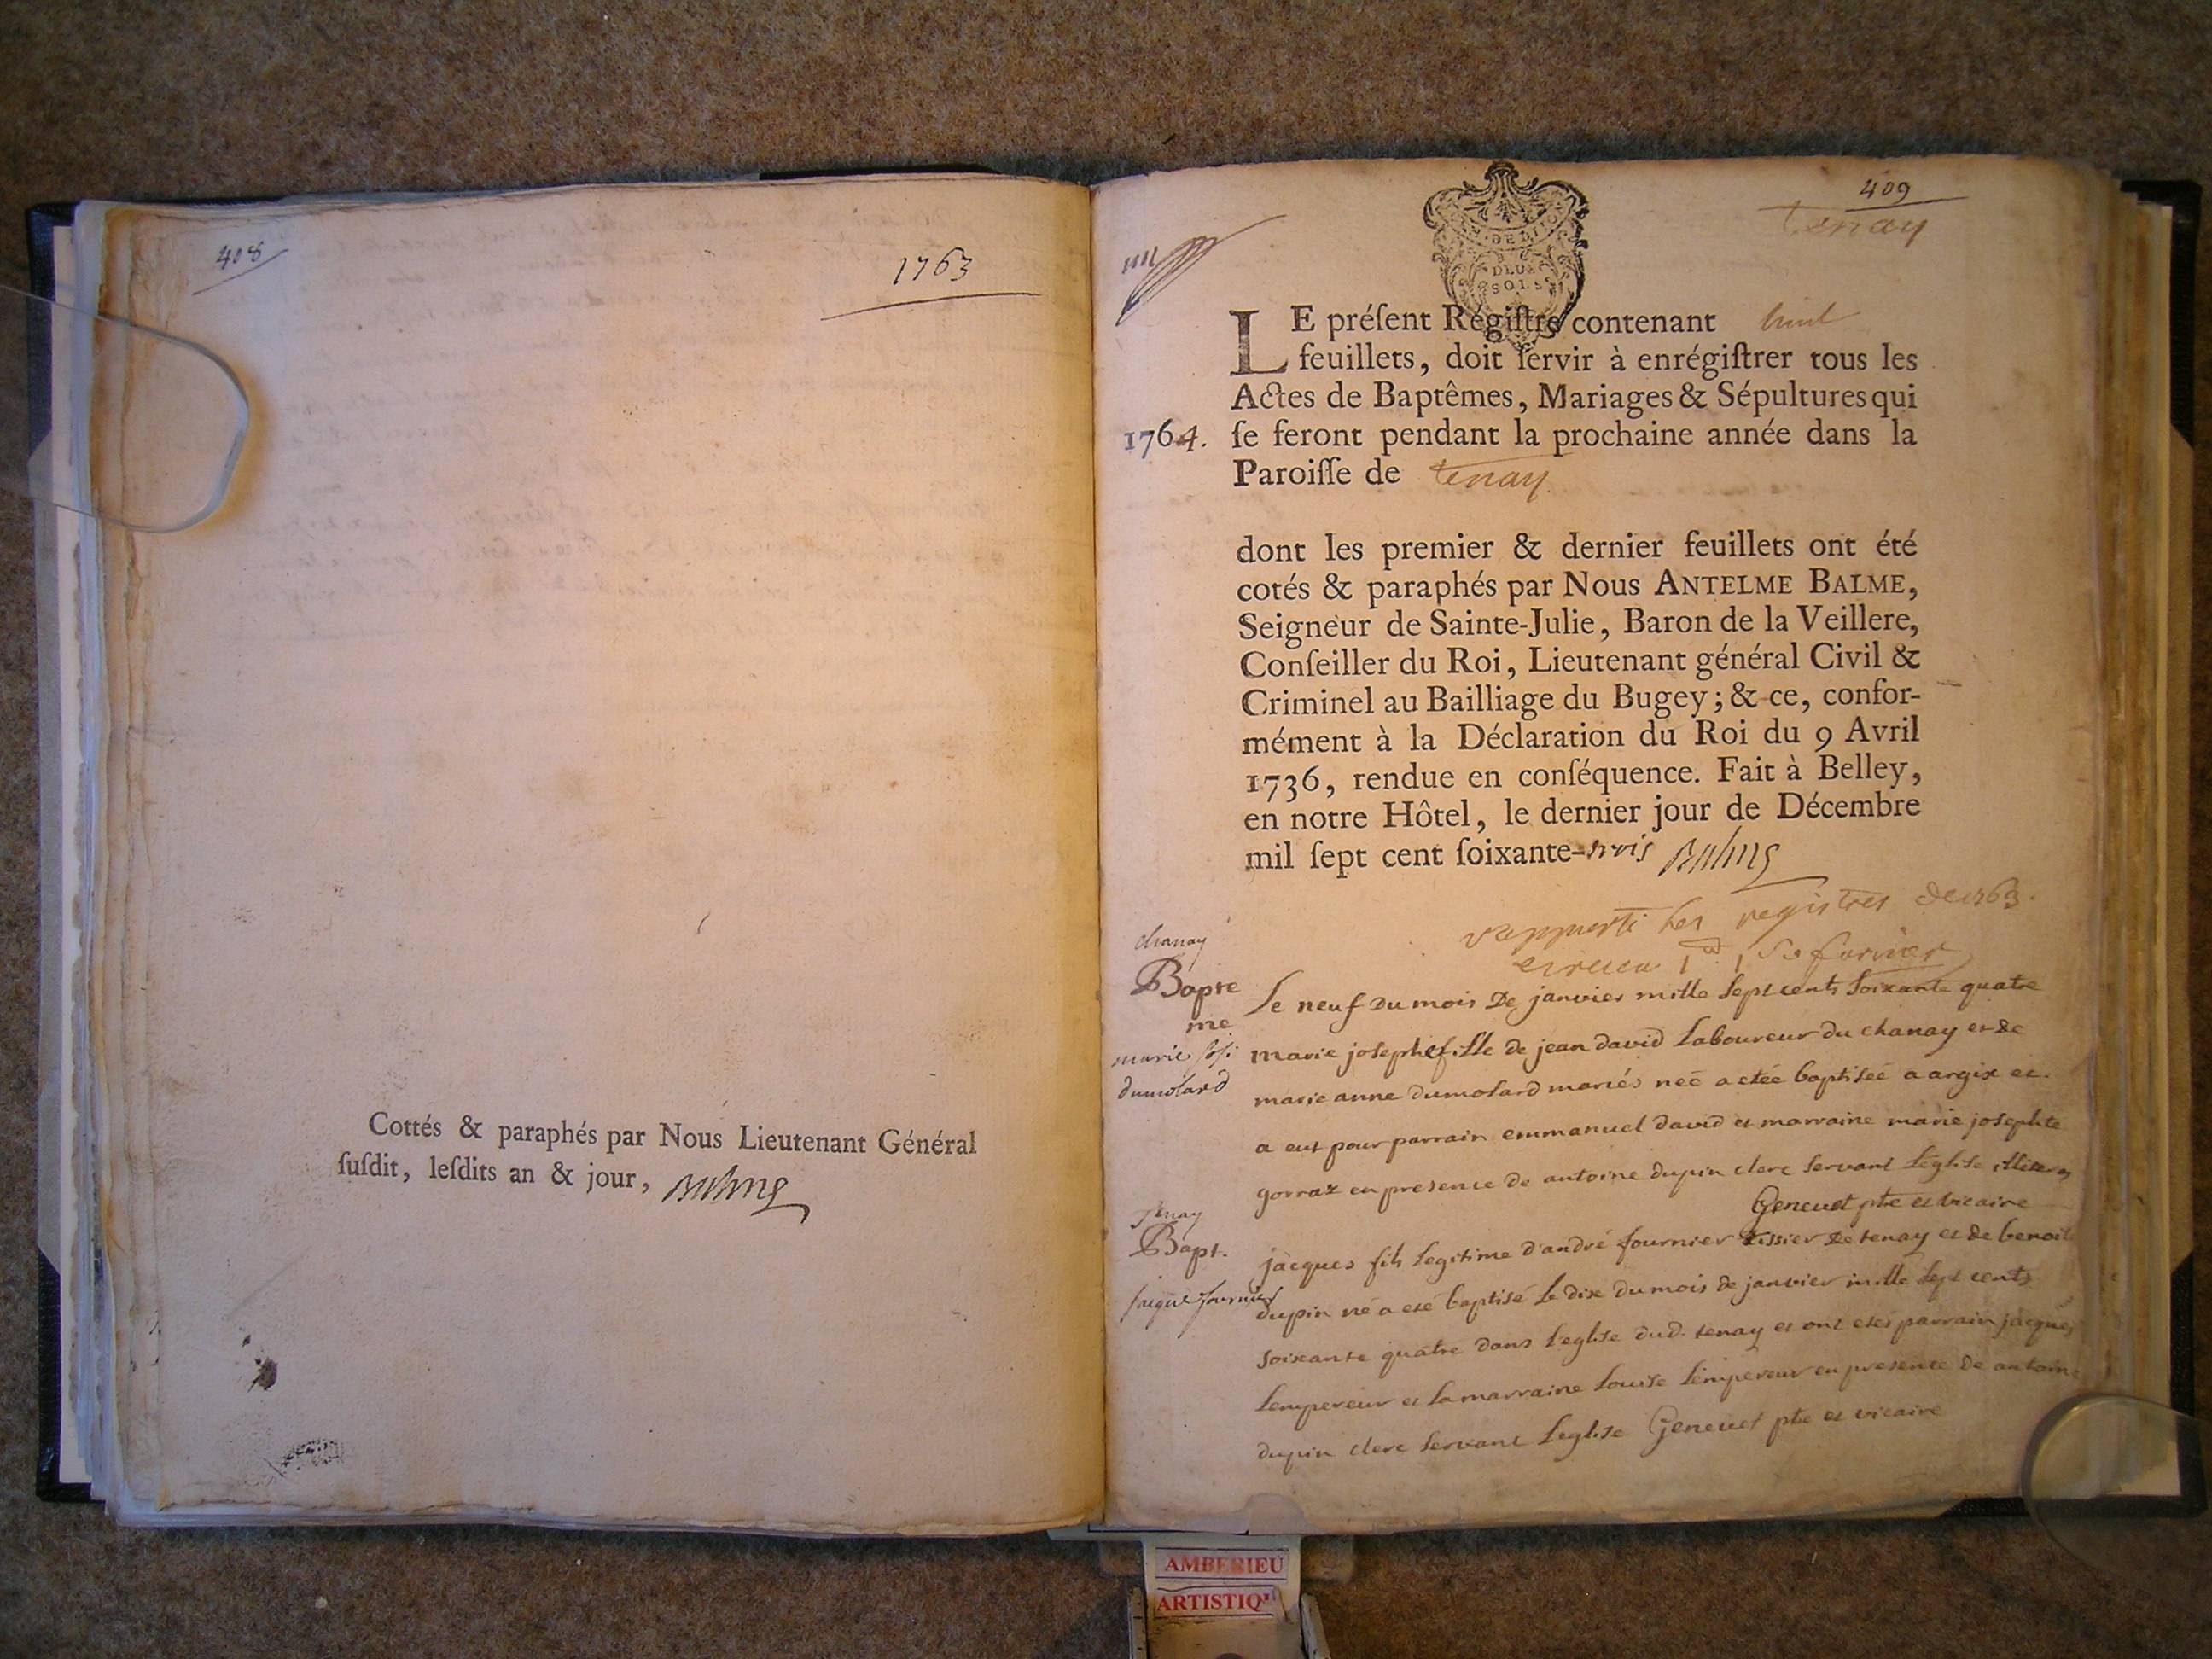 408
1763
Cottés & paraphés par Nous Lieutenant Général
ſuſdit, leſdits an & jour, Balme
409
tenay
DEUX
SOLS
LE préſent Régiſtre contenant huit
feuillets, doit ſervir à enrégiſtrer tous les
Actes de Baptêmes, Mariages & Sépultures qui
1764. ſe feront pendant la prochaine année dans la
Paroiſſe de tenay
dont les premier & dernier feuillets ont été
cotés & paraphés par Nous ANTELME BALME,
Seigneur de Sainte-Julie, Baron de la Veillere,
Conſeiller du Roi, Lieutenant général Civil &
Criminel au Bailliage du Bugey; & ce, confor-
mément à la Déclaration du Roi du 9 Avril
1736, rendue en conſéquence. Fait à Belley,
en notre Hôtel, le dernier jour de Décembre
mil ſept cent ſoixante-trois Balme
rapporté les registres de 1763.
chanay
Bapte
me
marie josé
dumolard
Le neuf du mois de janvier mille sept cents soixante quatre
marie josephe fille de jean david laboureur du chanay et de
marie anne dumolard mariés neé a etée baptiseé a argix et
a eut pour parrain emmanuel david et marraine marie josephte
gorraz en presence de antoine dupin clerc servant leglise
Genevet ptre et vicaire
tenay
Bapt.
jacque fournier
jacques fils legitime d'andré fournier tissier de tenay et de benoite
dupin né a eté baptisé le dix du mois de janvier mille sept cents
soixante quatre dans l'eglise dud. tenay et ont etés parrain jacques
lempereur et la marraine louise lempereur en presence de antoine
dupin clerc servant leglise Genevet ptre et vicaire
AMBERIEU
ARTISTIQ